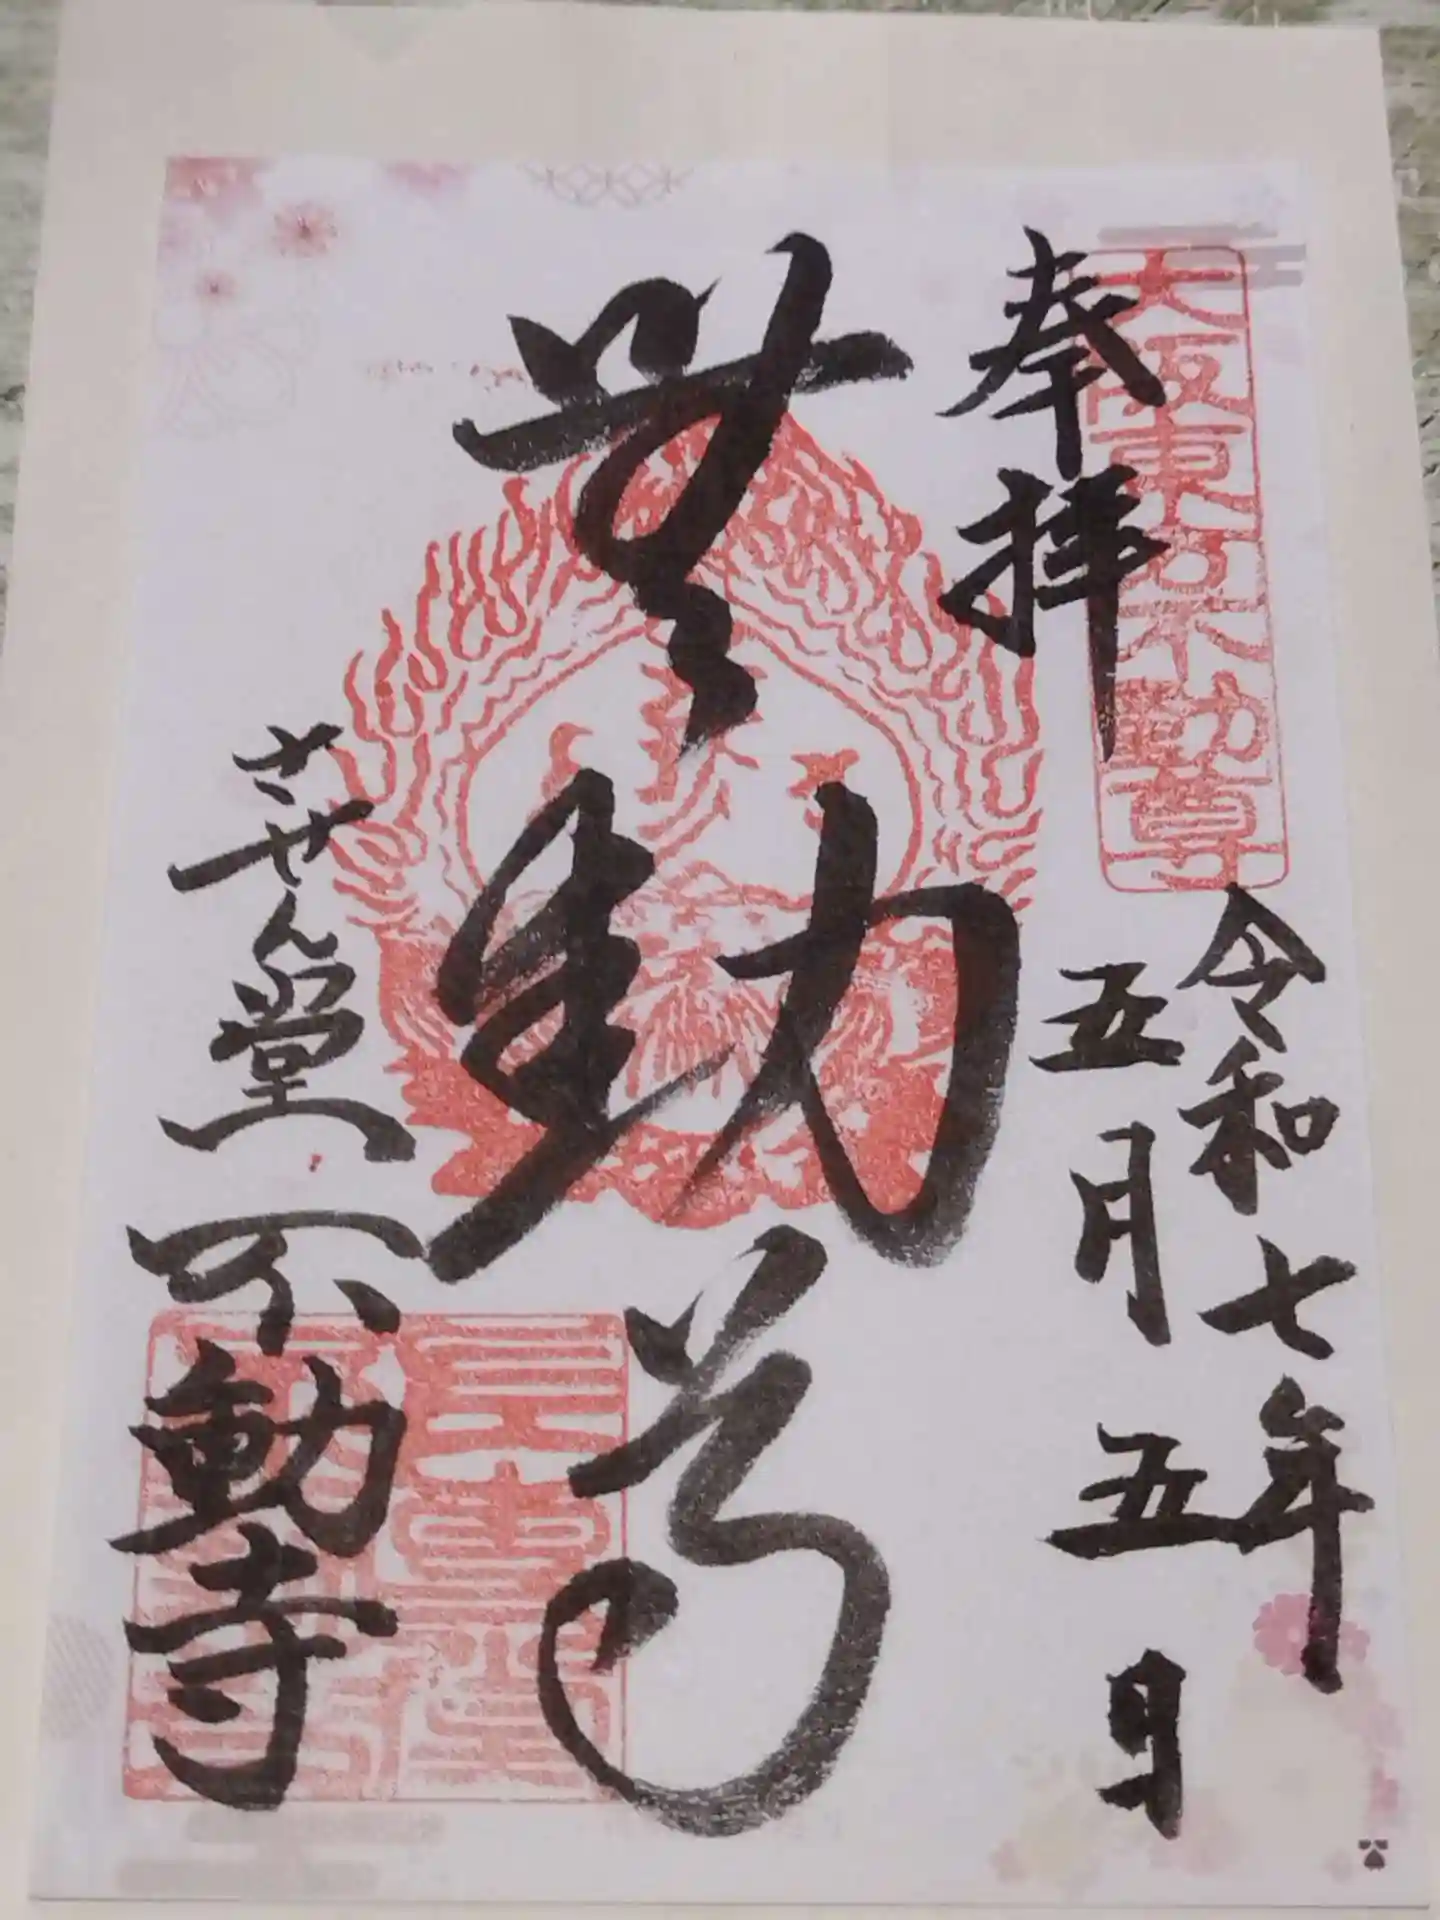 奉拝
大阪東方不動尊
令和七年
五月五日
無動尊
させん堂不動寺